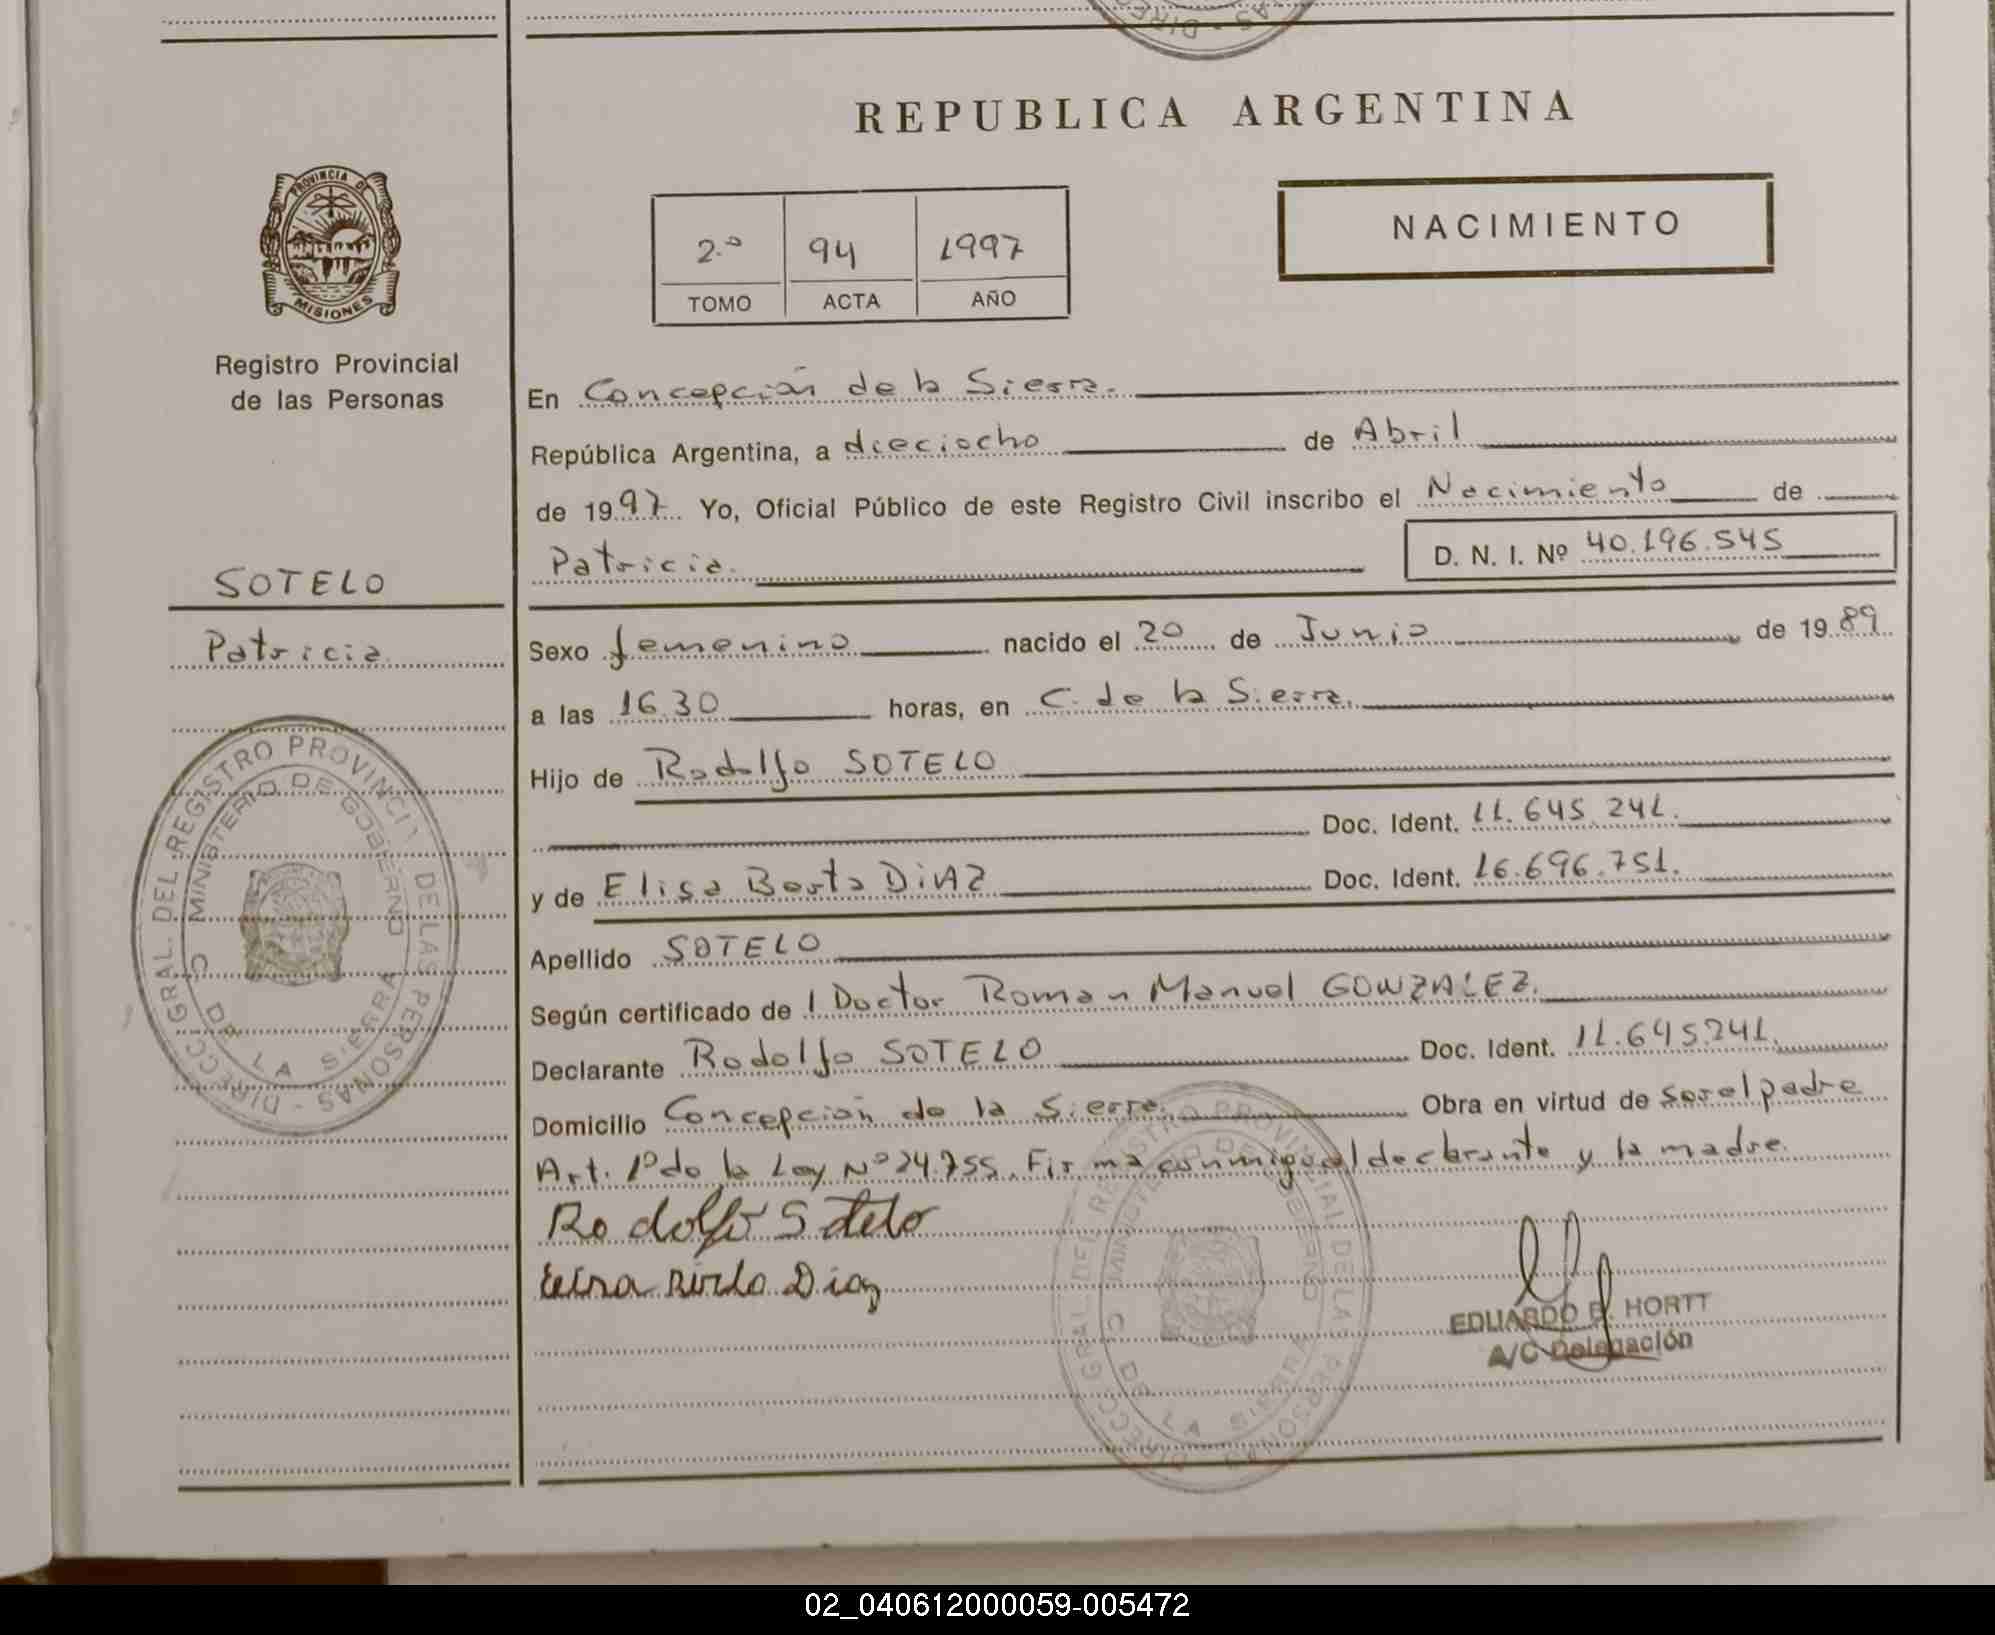 REPUBLICA ARGENTINA
NACIMIENTO
2.º 94 1997
TOMO ACTA AÑO
PROVINCIA DE
MISIONES
Registro Provincial
de las Personas
SOTELO
Patricia
En Concepción de la Sierra.
República Argentina, a dieciocho de Abril
de 1997 Yo, Oficial Público de este Registro Civil inscribo el Nacimiento de
Patricia. D. N. I. Nº 40.196.545
Sexo femenino nacido el 20 de Junio de 1989
a las 16.30 horas, en C. de la Sierra.
Hijo de Rodolfo SOTELO
Doc. Ident. 11.645.241.
y de Elisa Berta DiAZ Doc. Ident. 16.696.751.
Apellido SOTELO
Según certificado de l Doctor Roman Manuel GONZALEZ.
Declarante Rodolfo SOTELO Doc. Ident. 11.645.241.
Domicilio Concepción de la Sierra. Obra en virtud de ser el padre
Art. 1º de la Ley Nº 24.755. Firma conmigo el declarante y la madre.
Rodolfo Sotelo
Elisa Berta Diaz
EDUARDO E. HORTT
A/C Delegación
DIRECC. GRAL. DEL REGISTRO PROVINCIAL DE LAS PERSONAS
MINISTERIO DE GOBIERNO
C. DE LA SIERRA
DIRECC. GRAL. DEL REGISTRO PROVINCIAL DE LA PERSONAS
MINISTERIO DE GOBIERNO
C. DE LA SIERRA
02_040612000059-005472